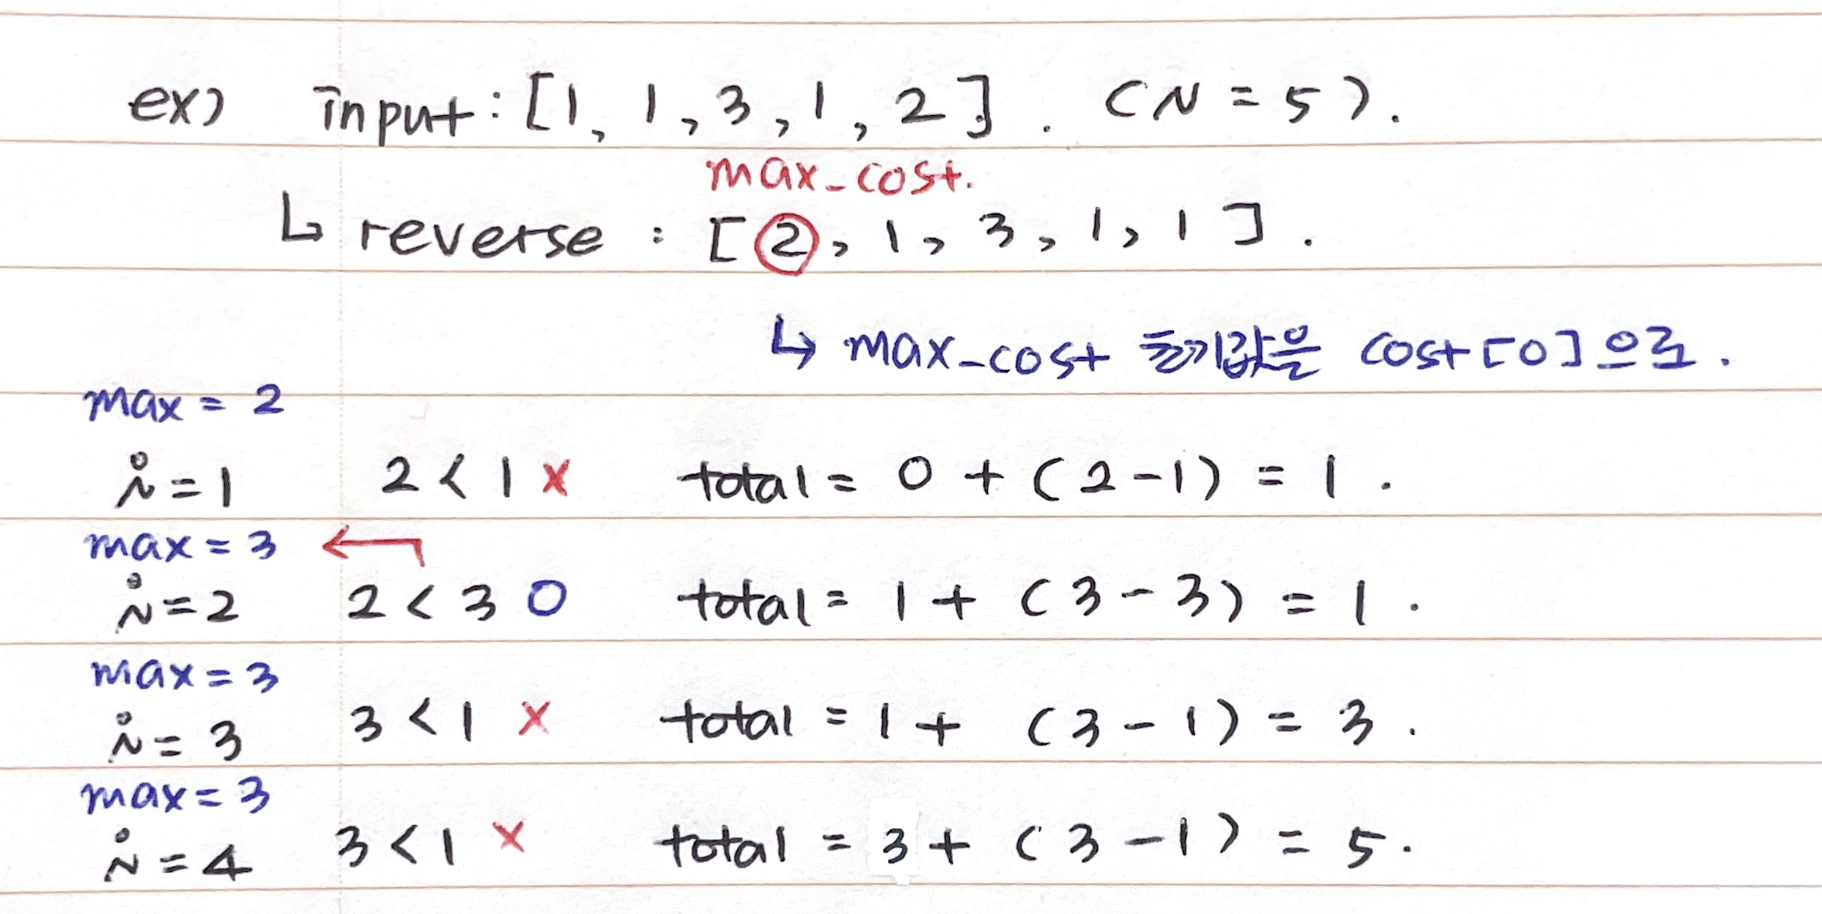 ex) input : [1, 1, 3, 1, 2]. (N = 5).
max_cost.
↳ reverse : [2, 1, 3, 1, 1].
↳ max_cost 초기값은 cost[0]으로.
max = 2
i = 1 2 < 1 x total = 0 + (2-1) = 1.
max = 3 ←
i = 2 2 < 3 O total = 1 + (3-3) = 1.
max = 3
i = 3 3 < 1 x total = 1 + (3-1) = 3.
max = 3
i = 4 3 < 1 x total = 3 + (3-1) = 5.